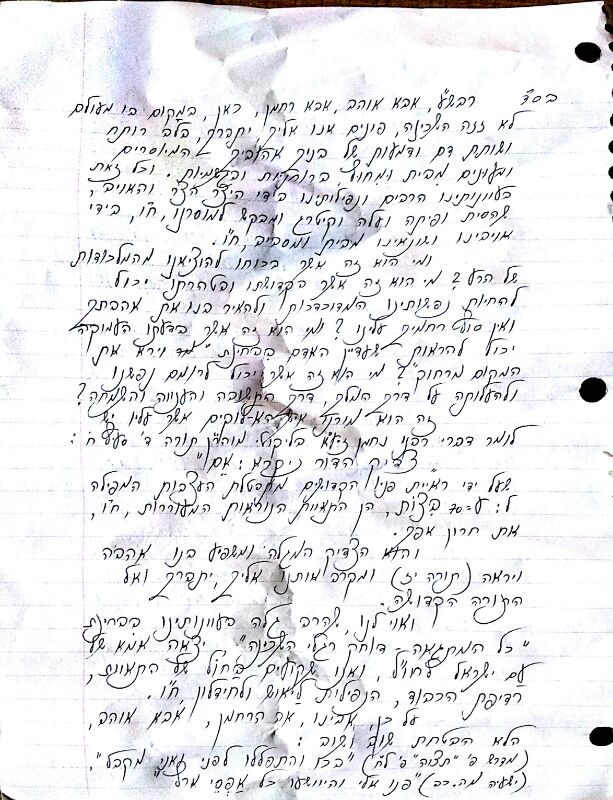 בסד רבש"ע, אבא אוהב, אבא רחמן, כאן, במקום בו מעולם
לא זזה השכינה, פונים אנו אליך, יתברך, בלב רותח
ושותת דם ודמעות של בניך אהוביך המיוסרים
ומעונים מבית ומחוץ ברוחניות ובגשמיות. וכל זאת
בעוונותינו הרבים ונפילותינו בידי היצר הצר והאויב,
שהסית ופיתה ועלה וקיטרג ומבקש למוסרנו, ח"ו, בידי
אויבינו ושונאינו מבית ומסביב, ח"ו.
ומי הוא זה אשר בכוחו להוציאנו מהמלכודות
של הרע? מי הוא זה אשר בקדושתו ובטהרתו יכול
להחיות נפשותינו המדוכדכות ולהאיר בנו את אהבתך
ואין סוף רחמיך עלינו? ומי הוא זה אשר בדעתו העמוקה
יכול להראות שעדיין האדם בבחינת "וירא את
המקום מרחוק"? מי הוא זה אשר יכול לרומם נפשנו
ולהעלותה על דרך המלך, דרך התשובה והענווה והשמחה?
זה הוא אשר עליו יש
לומר דברי רבנו נחמן זיע"א בליקוטי מוהר"ן תורה ד'
צדיק הדור ניקרא: אם"
שעל ידי ראיית פניו הקדושים מתבטלת העצבות המפילה
ל: ע-70 ביצות, הן התאוות הנוראות המעוררות, ח"ו,
את חרון אפך.
והוא הצדיק המגלה ומשפיע בנו אהבה
ויראה (תורה יז) ומקרב אותנו אליך, יתברך ואל
התורה הקדושה.
ואוי לנו, שהרב גלה בעוונותינו בבחינת
"כל המתגאה - דוחק רגלי השכינה". יצאה אמא של
עם ישראל לחו"ל, ואנו שקועים בחול של התאוות,
רדיפת הכבוד, הנפילות ליאוש ולחידלון, ח"ו.
על כן, אבינו, אב הרחמן, אבא אוהב,
הלא הבטחת שוב ושוב:
(מדרש פ' "תצוה" פ' ל"ח) "בכו והתפללו לפני ואני מקבל",
(ישעיה מה.כב) "פנו אלי והיוושעו כל אפסי ארץ"